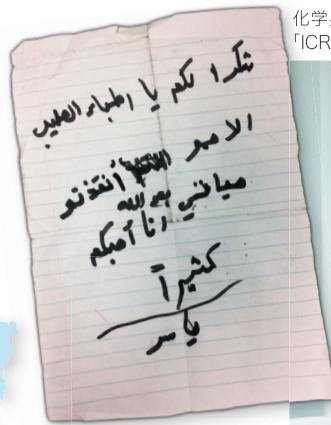 化学
「ICR
شكرا لكم يا اطباء الصليب
الاحمر أنقذتو
حياتي بعد الله
انا أحبكم
كثيراً
ياسر